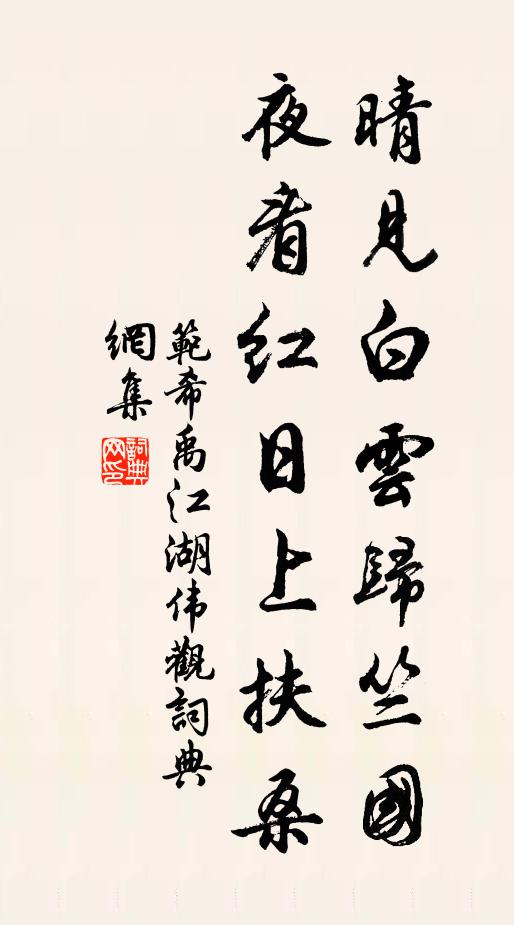 晴見白雲歸竺國
夜看紅日上扶桑
範希禹江湖伟觀詞典
網集
詞典网印